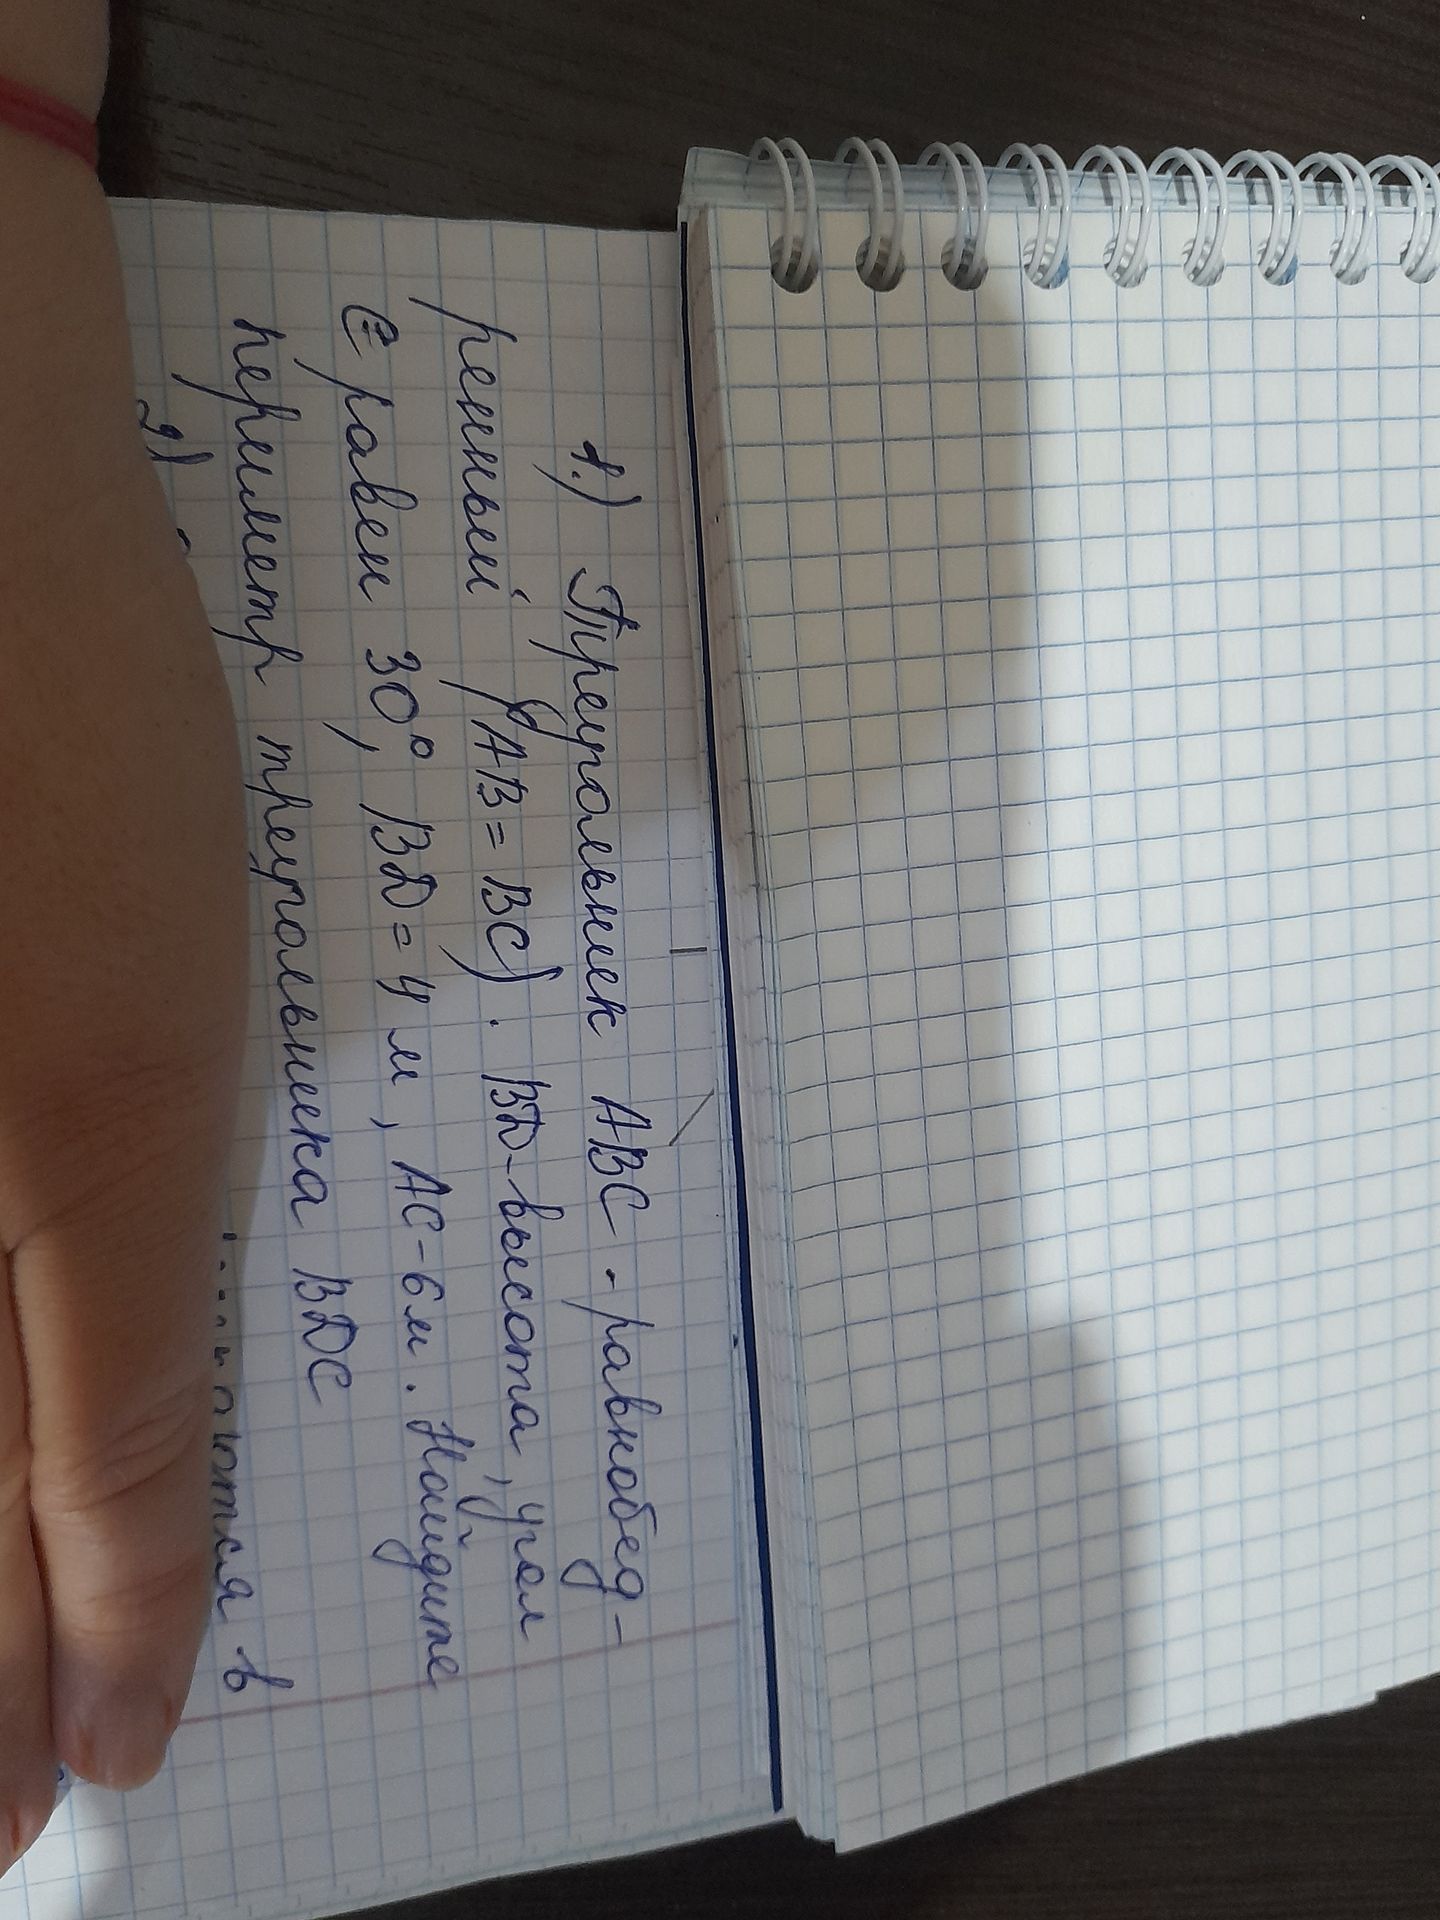 1.) Треугольник ABC - равнобед-
ренный (AB = BC). BD - высота, угол
C равен 30°, BD = 4 м, AC - 6 м. Найдите
периметр треугольника BDC
2)
в